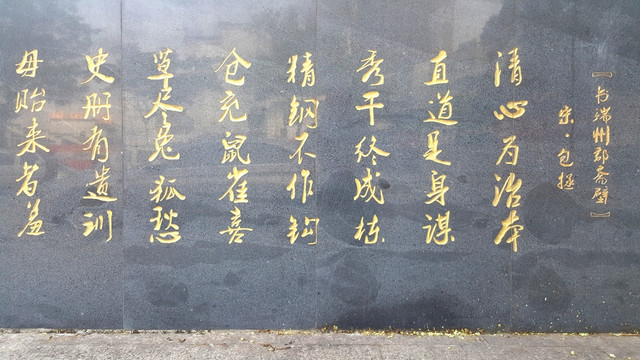 【书端州郡斋壁】
宋·包拯
清心为治本
直道是身谋
秀干终成栋
精钢不作钩
仓充鼠雀喜
草尽兔狐愁
史册有遗训
毋贻来者羞